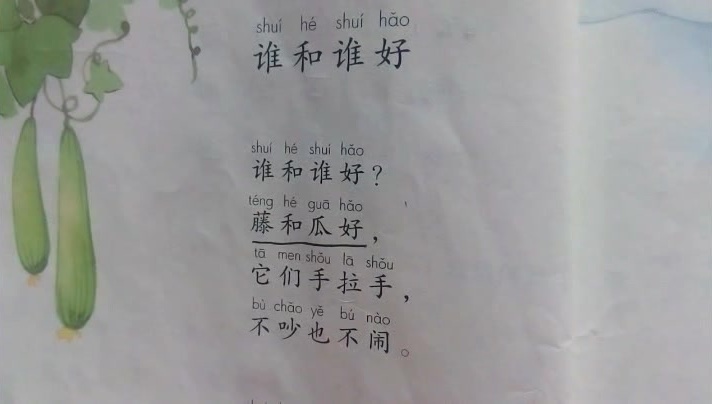 shuí hé shuí hǎo
谁和谁好
shuí hé shuí hǎo
谁和谁好？
téng hé guā hǎo
藤和瓜好，
tā men shǒu lā shǒu
它们手拉手，
bù chǎo yě bú nào
不吵也不闹。